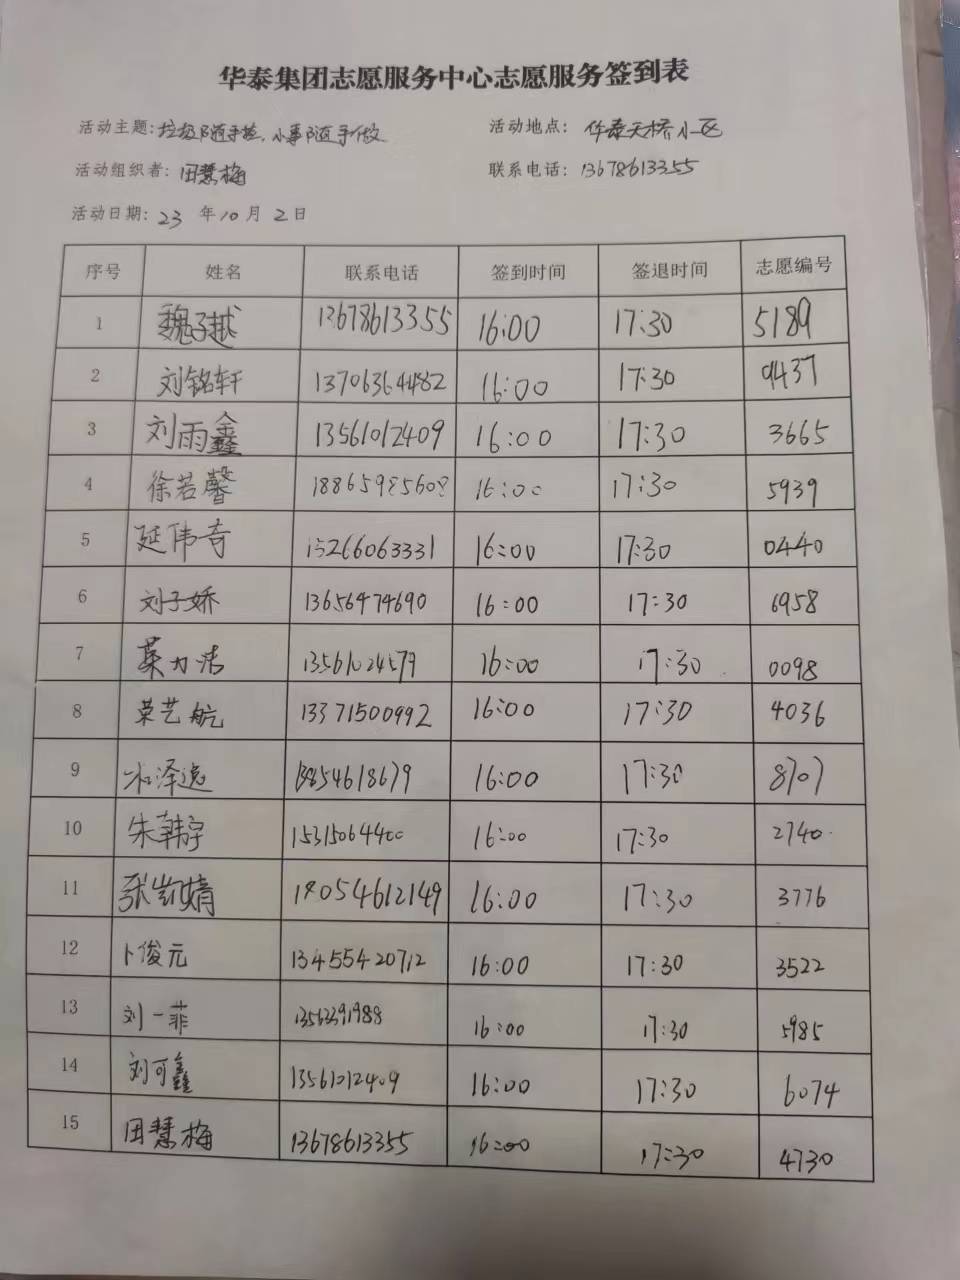 华泰集团志愿服务中心志愿服务签到表
活动主题:垃圾随手捡、小事随手做 活动地点: 华泰天桥小区
活动组织者:田慧梅 联系电话:13678613355
活动日期:23 年10月 2日
序号 姓名 联系电话 签到时间 签退时间 志愿编号
1 魏子越 13678613355 16:00 17:30 5189
2 刘铭轩 13706364482 16:00 17:30 9437
3 刘雨鑫 13561012409 16:00 17:30 3665
4 徐若馨 16:00 17:30 5939
5 延伟奇 15266063331 16:00 17:30 0440
6 刘子娇 13656474690 16:00 17:30 6958
7 16:00 17:30 0098
8 荣艺航 13371500992 16:00 17:30 4036
9 16:00 17:30 8707
10 朱韩宇 15315064400 16:00 17:30 2740
11 18054612149 16:00 17:30 3776
12 卜俊元 13455420712 16:00 17:30 3522
13 刘一菲 16:00 17:30 5985
14 刘可鑫 13561012409 16:00 17:30 6074
15 田慧梅 13678613355 16:00 17:30 4730